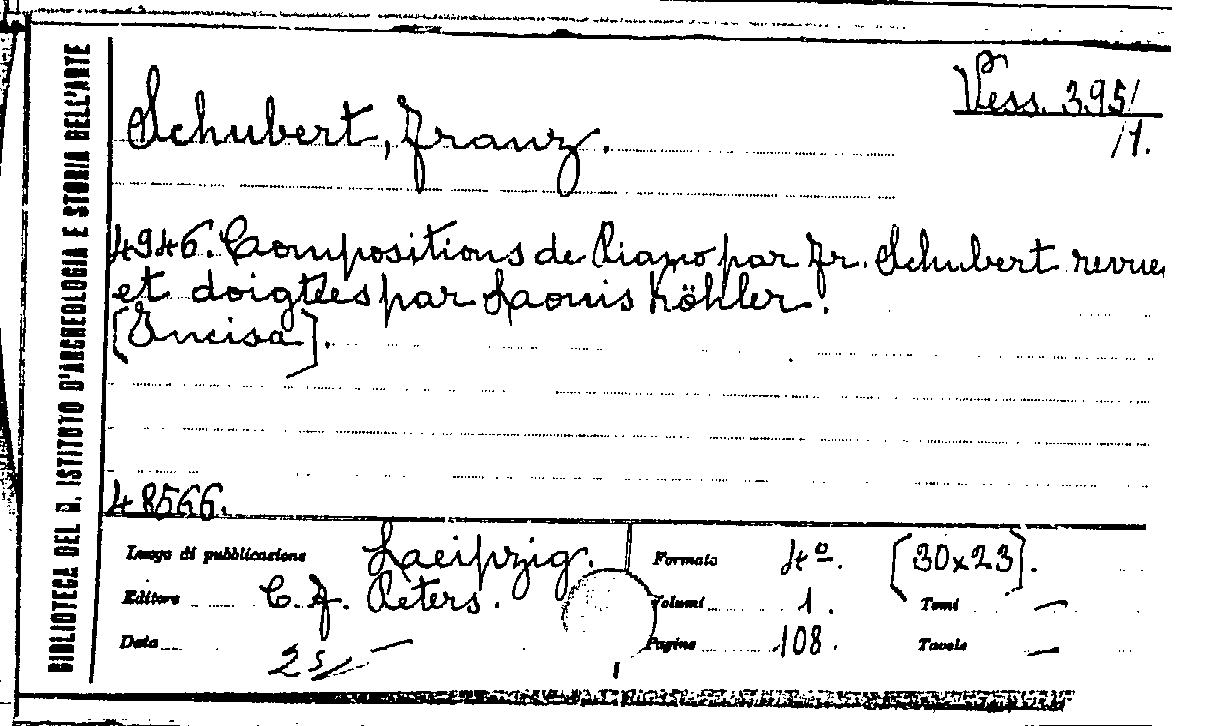 BIBLIOTECA DEL R. ISTITUTO D'ARCHEOLOGIA E STORIA DELL'ARTE
Vess. 395/
/1.
Schubert, Franz.
4946. Compositions de Piano par Fr. Schubert revues
et doigtées par Louis Köhler.
[Incisa].
48566.
Luogo di pubblicazione Leipzig.
Editore C. F. Peters.
Data
Formato 4º. [30x23].
Volumi 1. Tomi —
Pagine 108. Tavole —